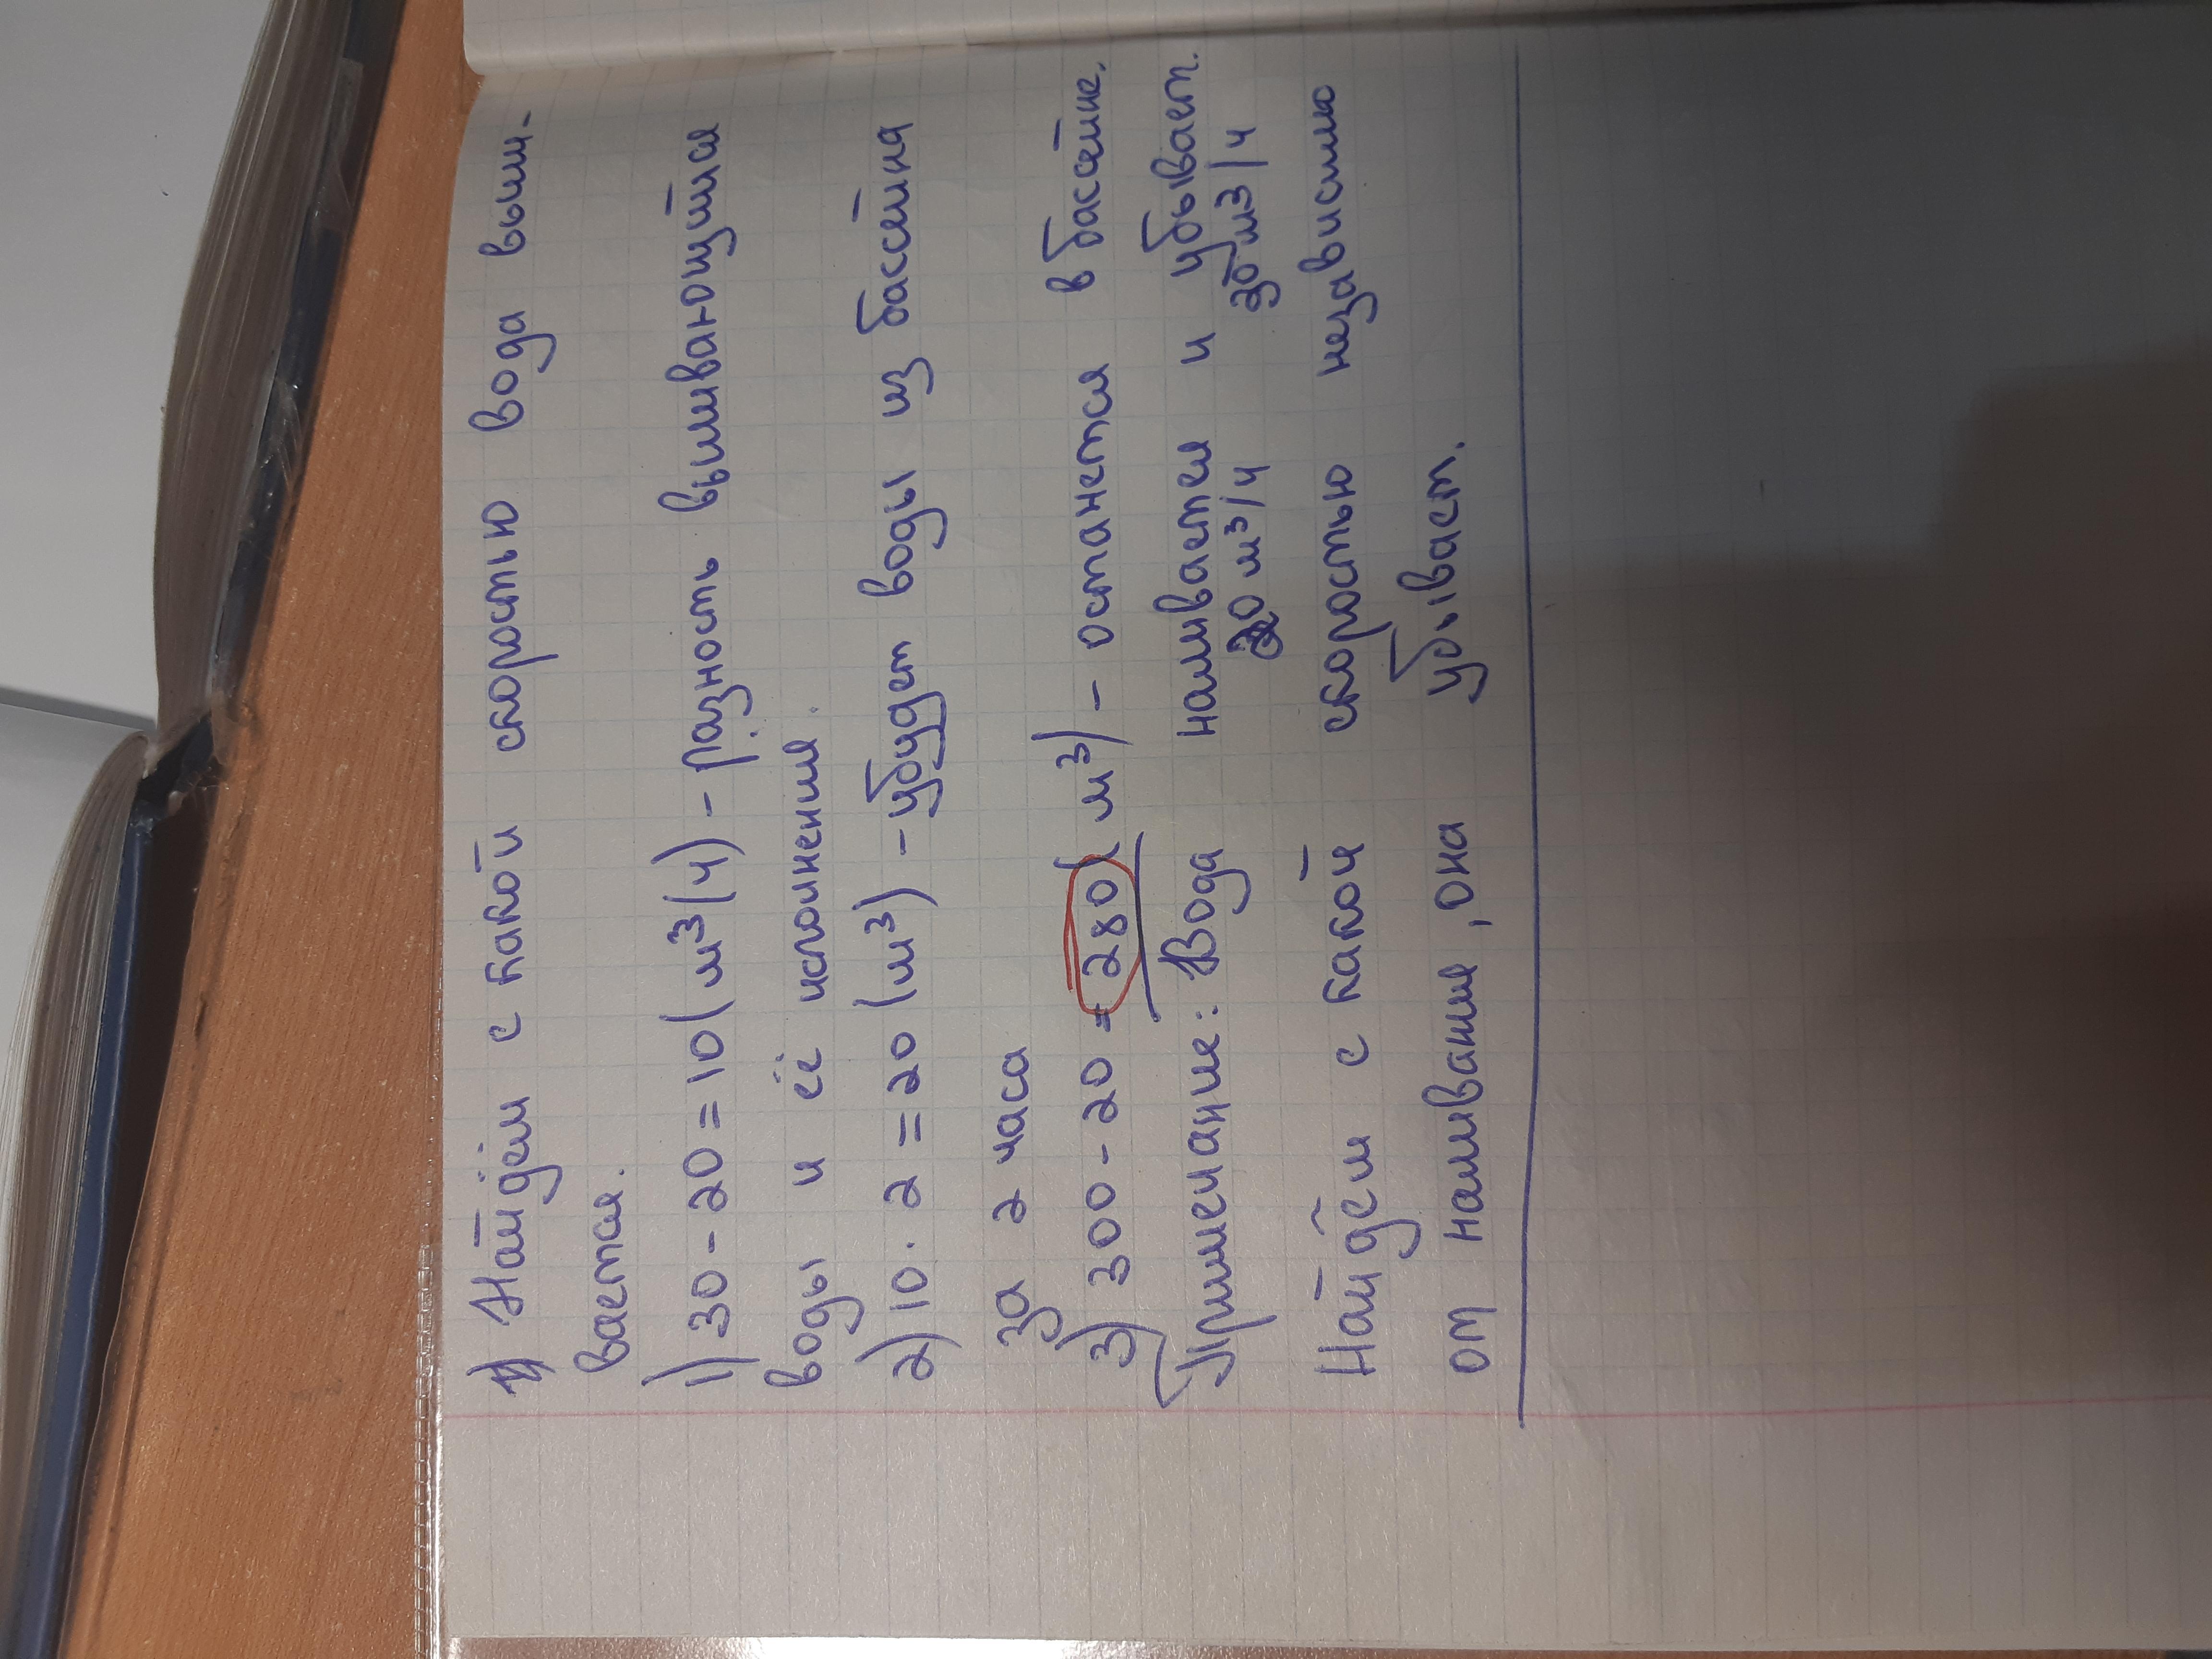 Найдём с какой скоростью вода выли-
вается.
1) 30 - 20 = 10 (м³/ч) - разность выливающийся
воды и её исполнения.
2) 10 · 2 = 20 (м³) - убудет воды из бассейна
за 2 часа
3) 300 - 20 = 280 (м³) - останется в басейне.
Примечание: Вода наливается и убывает.
20 м³/ч 30 м3/ч
Найдём с какой скоростью независимо
от наливания, она убывает.